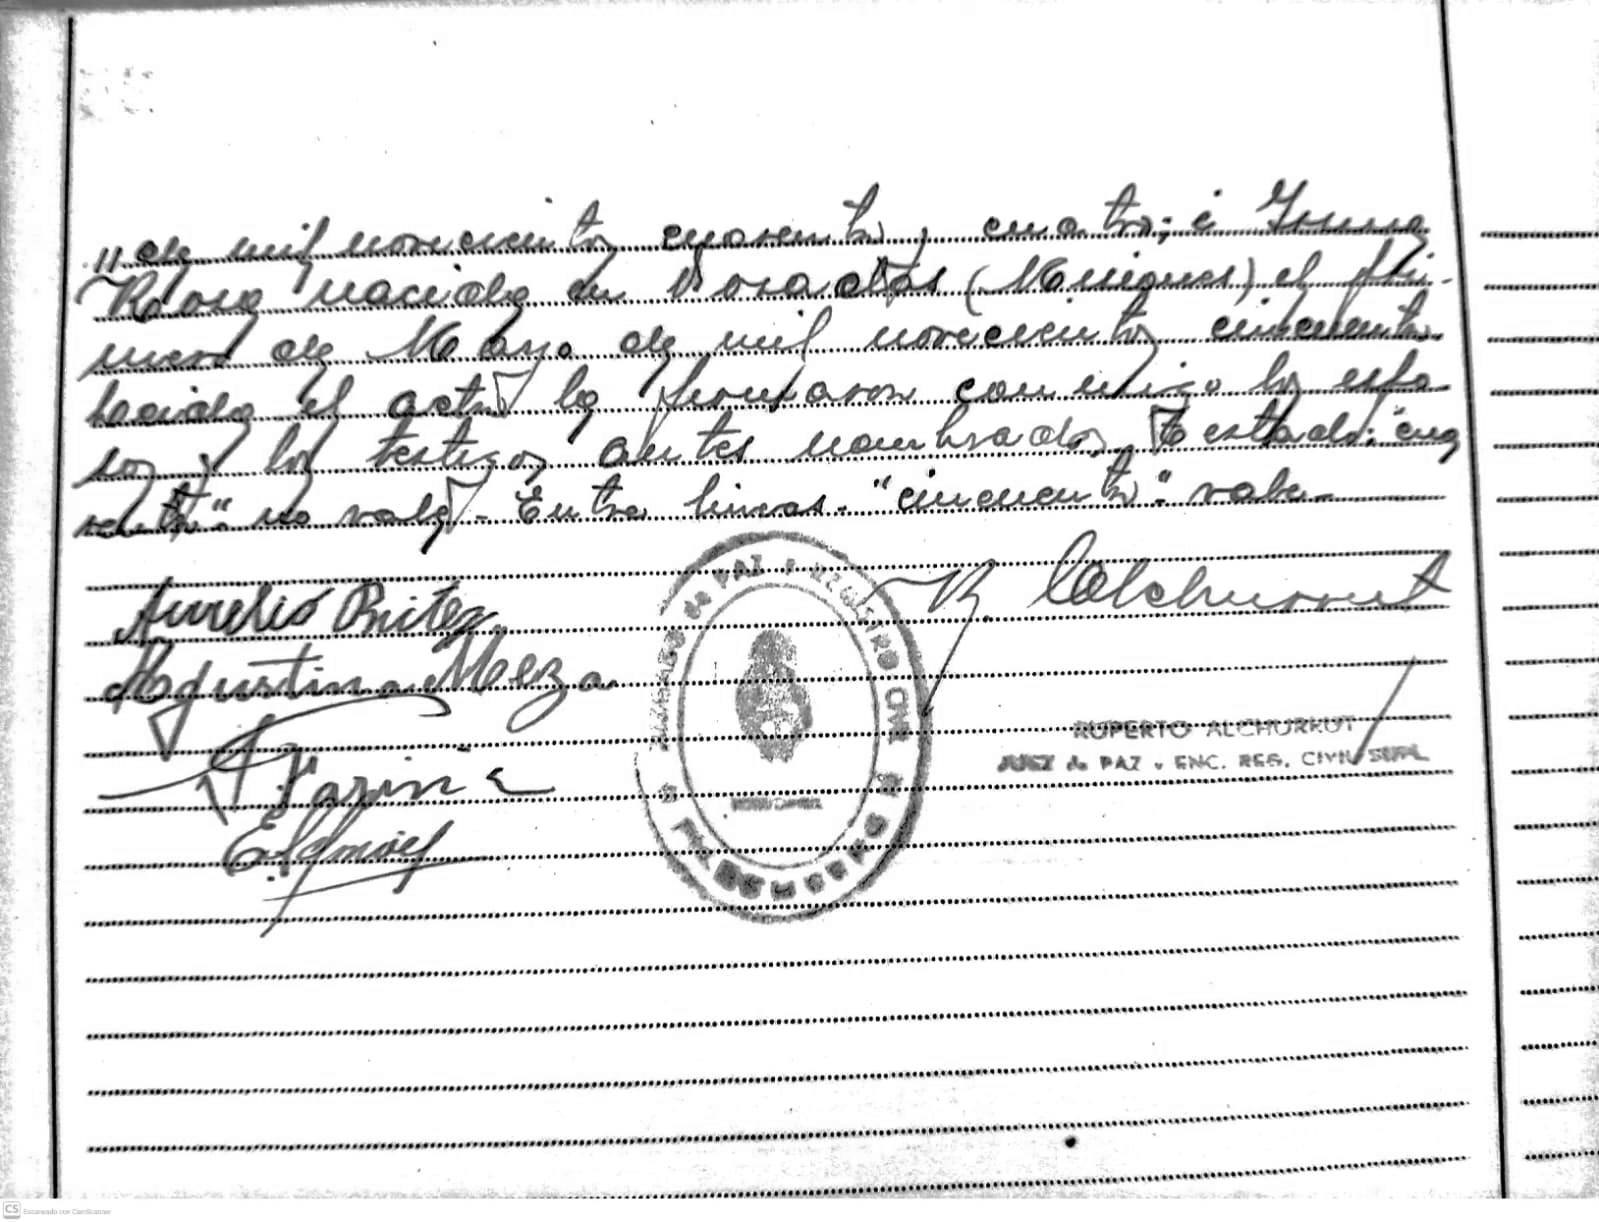 "de mil novecientos cuarenta y cuatro; é
Rosa nacida en Posadas (Misiones) el pri-
mero de Mayo de mil novecientos cincuenta
leida el acta la firmaron conmigo los espo-
sos y los testigos antes nombrados. Testado: "cua
renta" no vale. - Entre lineas. "cincuenta". vale -
Aurelio Benitez
R. Alchurrut
Agustina Meza
RUPERTO ALCHURRUT
JUEZ de PAZ y ENC. REG. CIVIL SUPL.
JUZGADO de PAZ y REGISTRO CIVIL
CS Escaneado con CamScanner